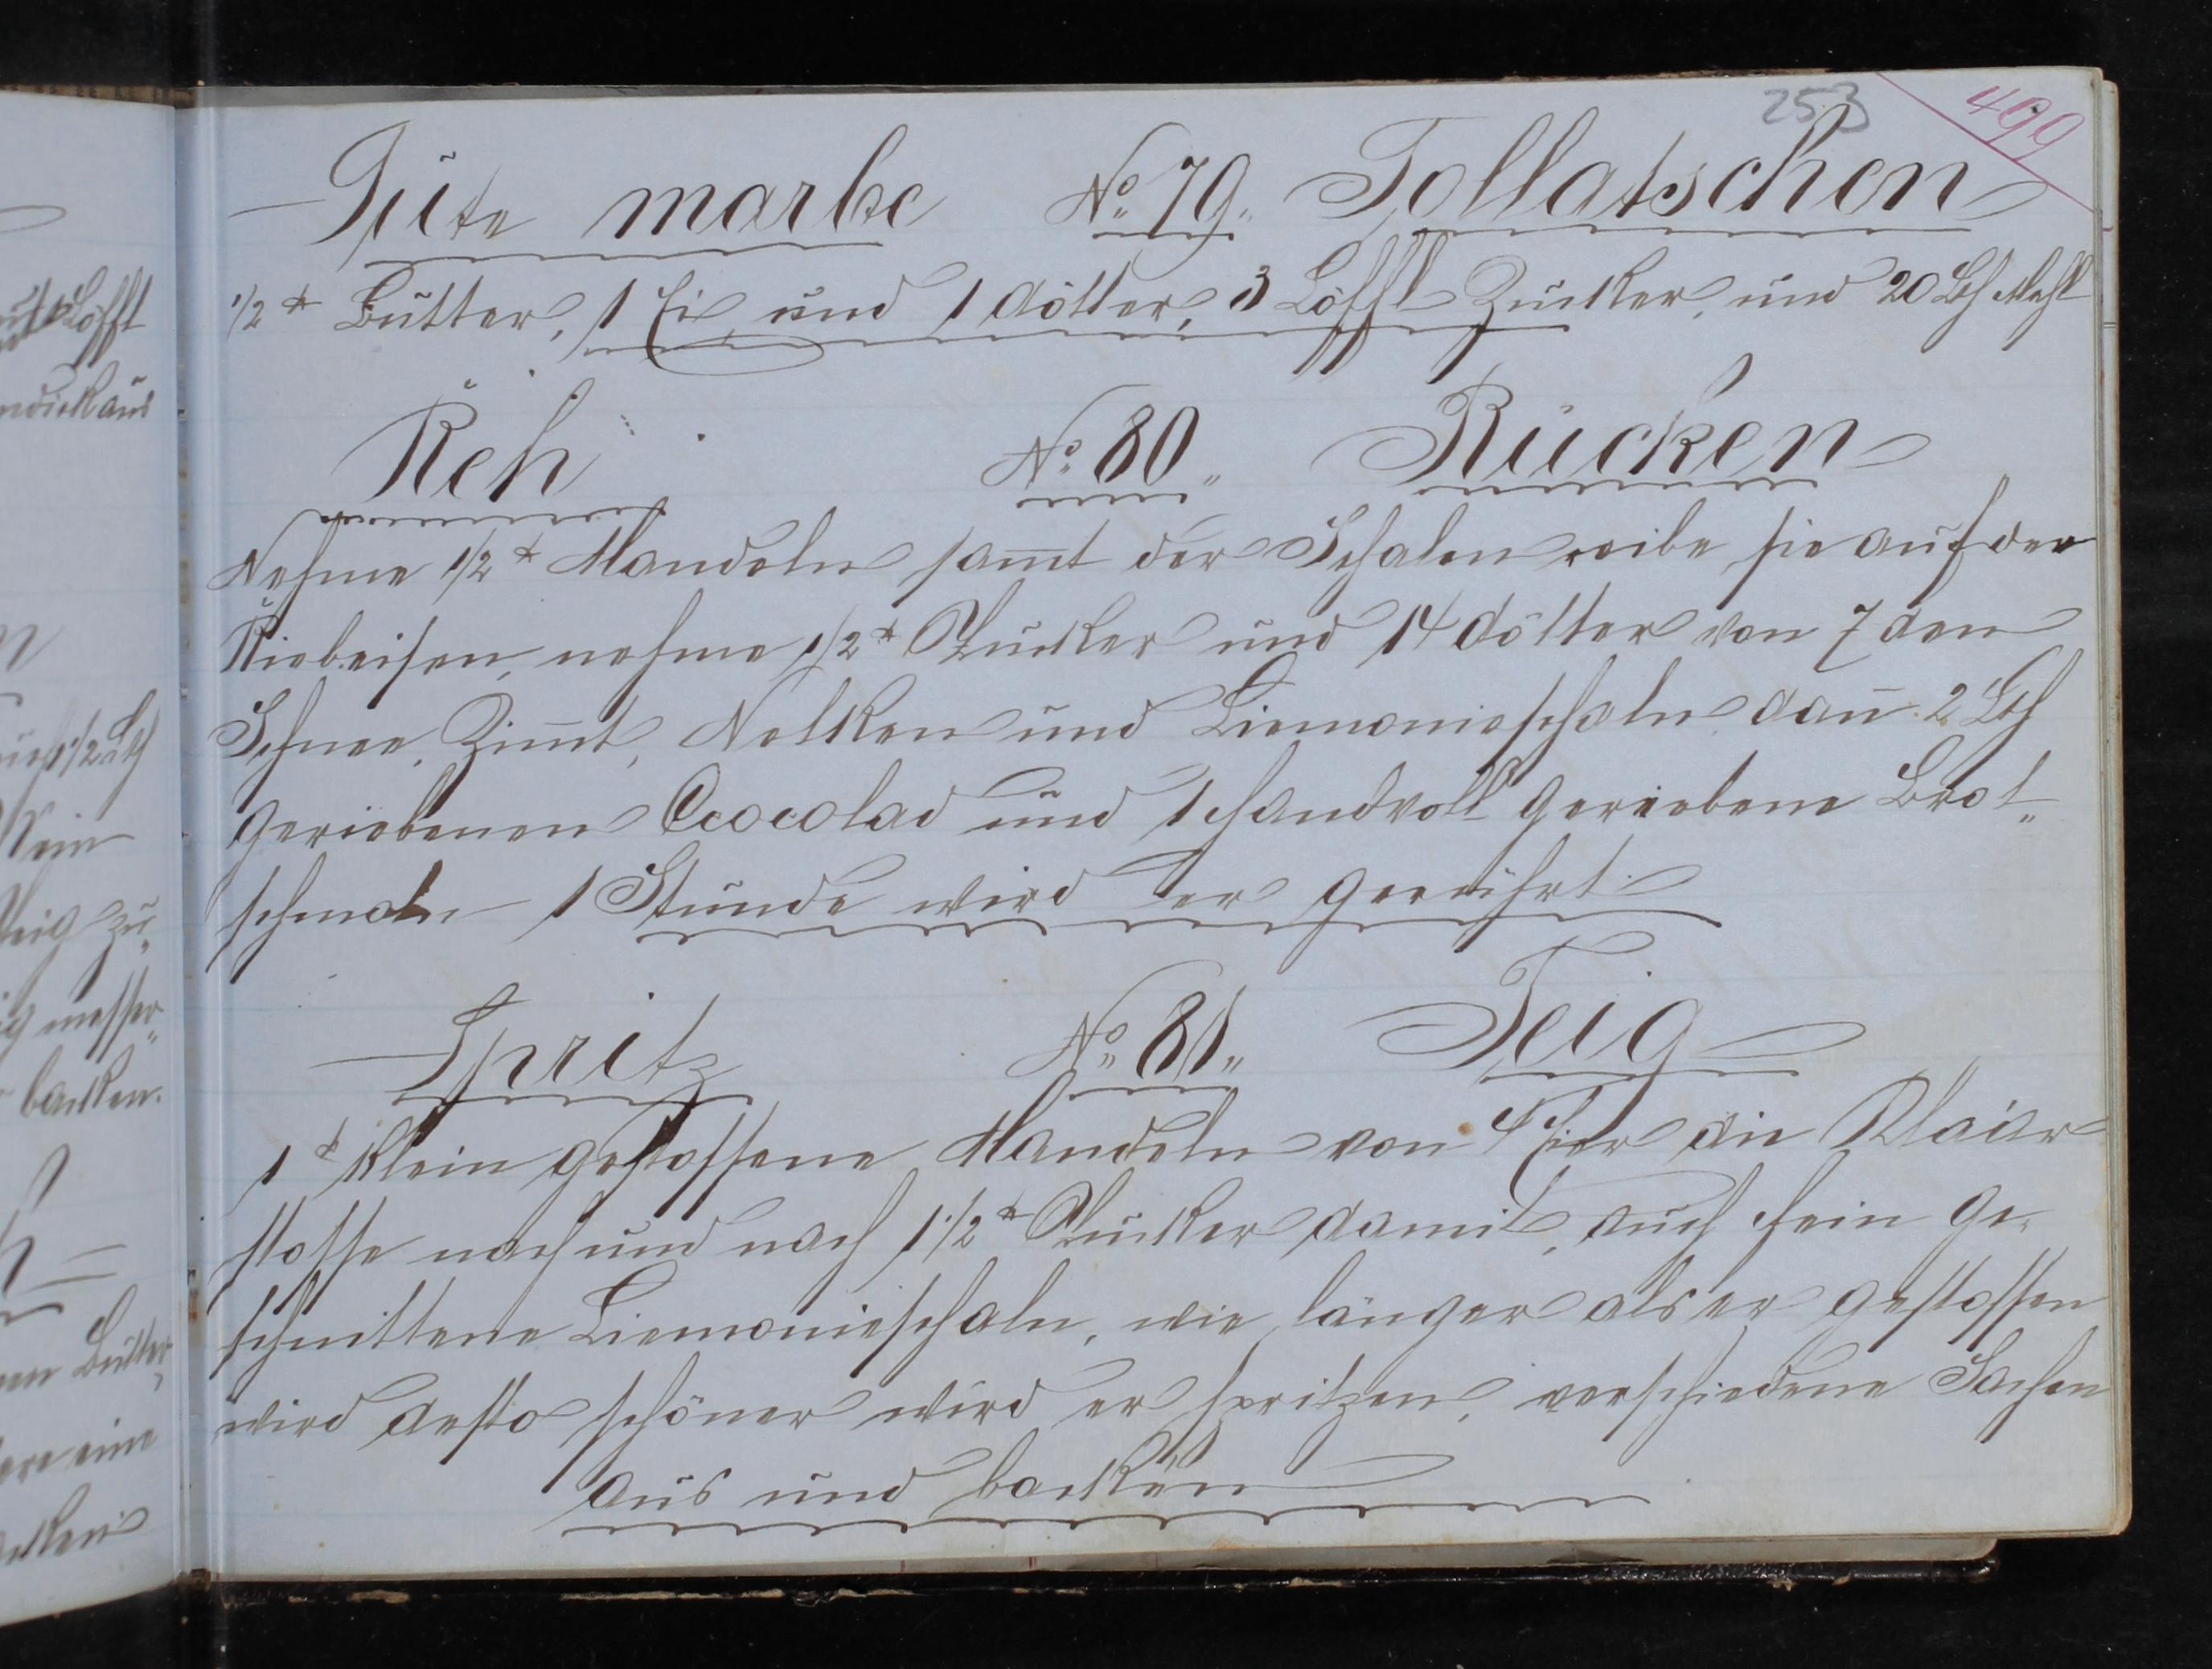 253
499
Gute marbe No 79. Tollatschen
1/2 ℔ Butter, 1 Ei und 1 Dötter, 3 Löffl Zucker, und 20 Lth Mehl
Reh No 80 Rücken
Nehme 1/2 ℔ Mandeln sam̅t der Schalen reibe sie auf der
Riebeisen, nehme 1/2 ℔ Zucker und 14 Dötter von 7 den
Schnee, Zim̅t, Nelken und Liemonieschaln, dan̅ 2 Lth
geriebenen Cocolad und 1 Handvoll geriebene Brot„
schmoln 1 Stunde wird er gerührt
Spritz No 81„ Teig
1 ℔ klein gestossene Mandeln von 4 Eier die Klaar
stosse nach und nach 1 1/2 ℔ Zucker damit, auch fein ge„
schnittene Liemonieschaln, wie länger als er gestossen
wird desto schöner wird er spritzen, verschiedene Sachen
aus und backen
Löfft
1/2 Lth
Teig zu„
messer„
backen.
Butter„
eine